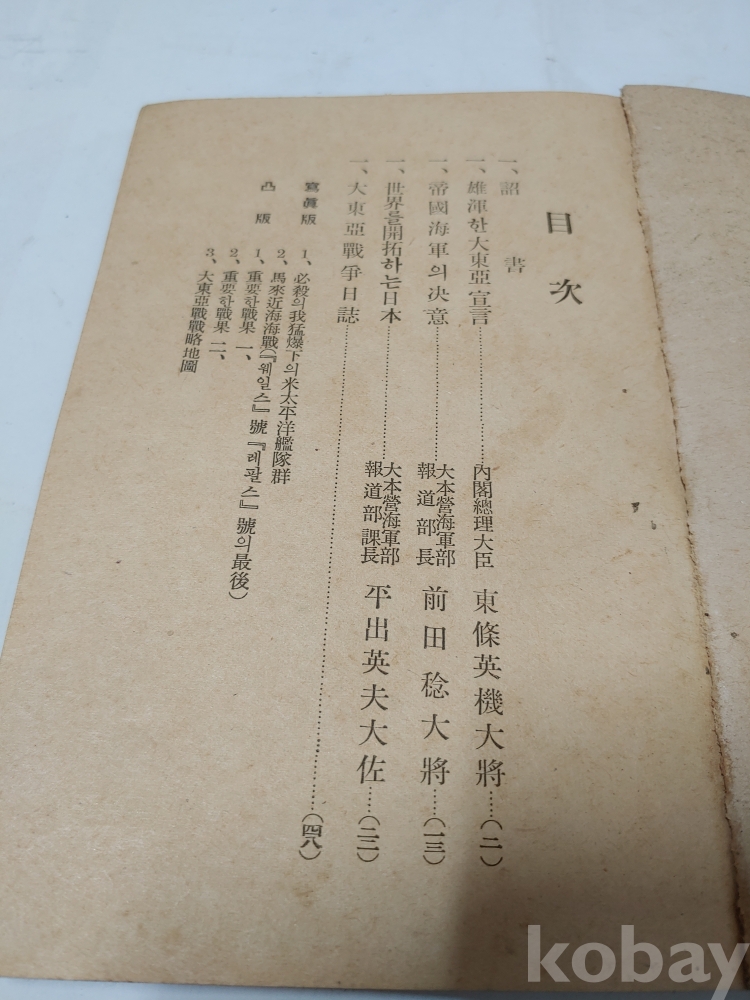 目次
一、詔書
一、雄渾한大東亞宣言……內閣總理大臣 東條英機大將……(二)
一、帝國海軍의決意……大本營海軍部報道部長 前田稔大將……(一三)
一、世界를開拓하는日本……大本營海軍部報道部課長 平出英夫大佐……(二二)
一、大東亞戰爭日誌……(四八)
寫眞版 1、必殺의我猛爆下의米太平洋艦隊群
2、馬來近海海戰(『웨일스』號『레팔스』號의最後)
凸版 1、重要한戰果 一、
2、重要한戰果 二、
3、大東亞戰戰略地圖
kobay